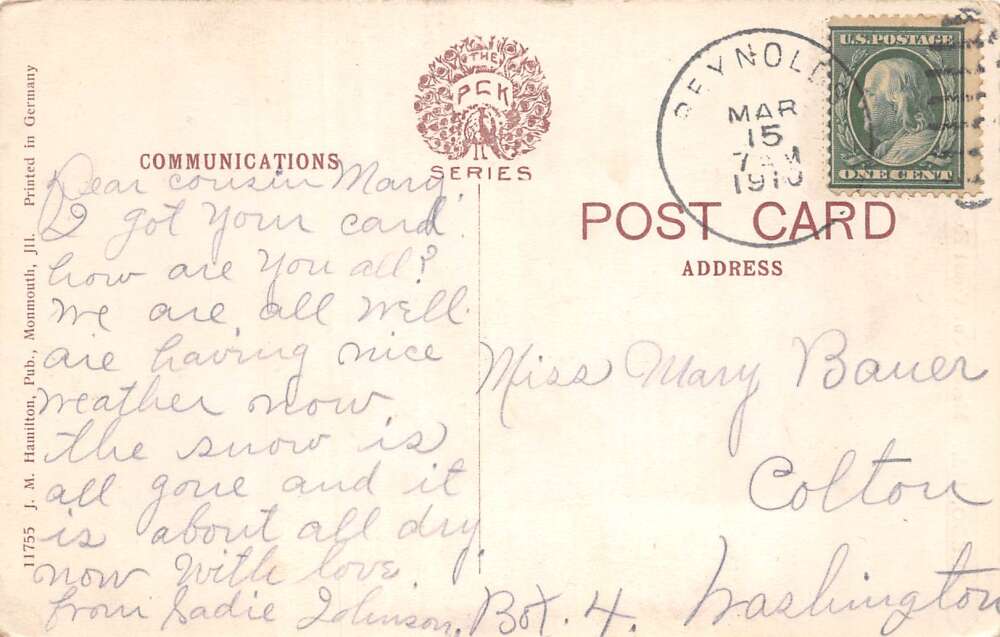 11755 J. M. Hamilton, Pub., Monmouth, Jll. Printed in Germany
COMMUNICATIONS
THE
PCK
SERIES
REYNOLDS
MAR
15
7 AM
1910
U.S. POSTAGE
ONE CENT
POST CARD
ADDRESS
Dear cousin Mary.
I got your card.
how are you all?
We are all well.
are having nice
weather now.
the snow is
all gone and it
is about all dry
now with love.
from Sadie Johnson.
Miss Mary Bauer
Colton
Washington
Box. 4.